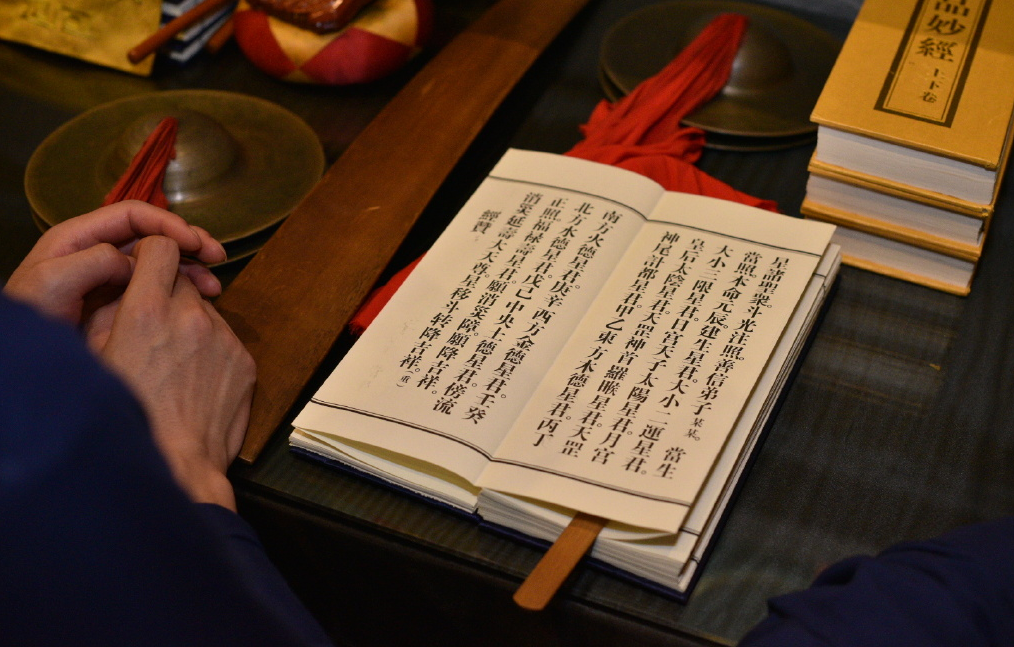 星諸聖衆。斗光注照。善信弟子某某。當生
當照。本命元辰。建生星君。大小二運星君。
大小三限星君。日宮天子太陽星君。月宮
皇后太陰星君。天罡神首羅睺星君。天罡
神尾計都星君。甲乙東方木德星君。丙丁
南方火德星君。庚辛西方金德星君。壬癸
北方水德星君。戊己中央土德星君。傍流
正照福祿壽星君。願消災障願降吉祥。
消災延壽大天尊。星移斗转降吉祥。(重)
經贊
品妙經
上下卷